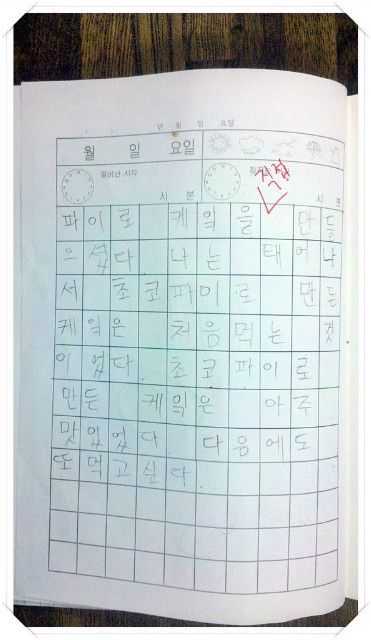 년 월 일 요일
월 일 요일
일어난 시각
시 분 시 분
직접
파이로 케익을 만들
으셨다. 나는 태어나
서 초코파이로 만든
케익은 처음먹는 것
이 었다. 초코파이로
만든 케익은 아주
맛있었다. 다음에도
또먹고싶다.